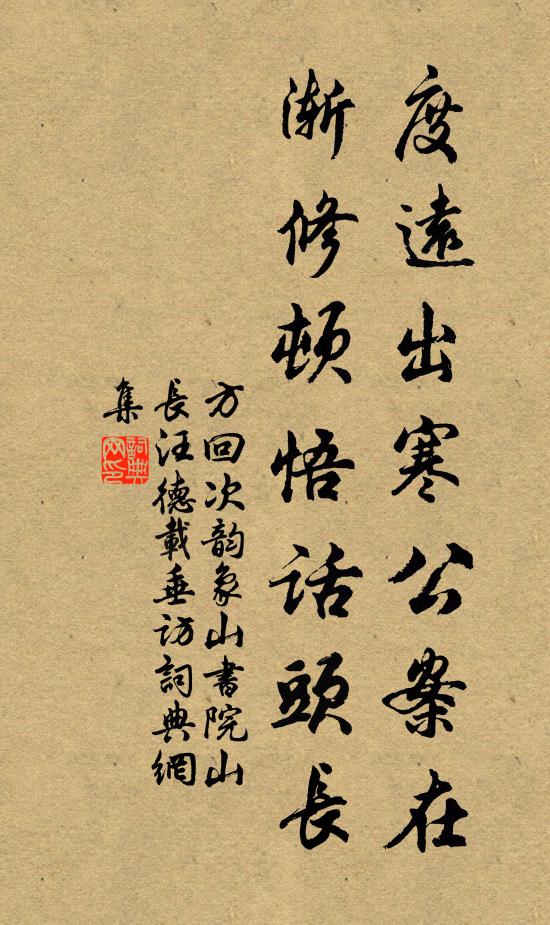 度遠出寒公案在
漸修頓悟話頭長
方回次韵象山書院山
長汪德載垂訪詞典網
集
詞典
网印